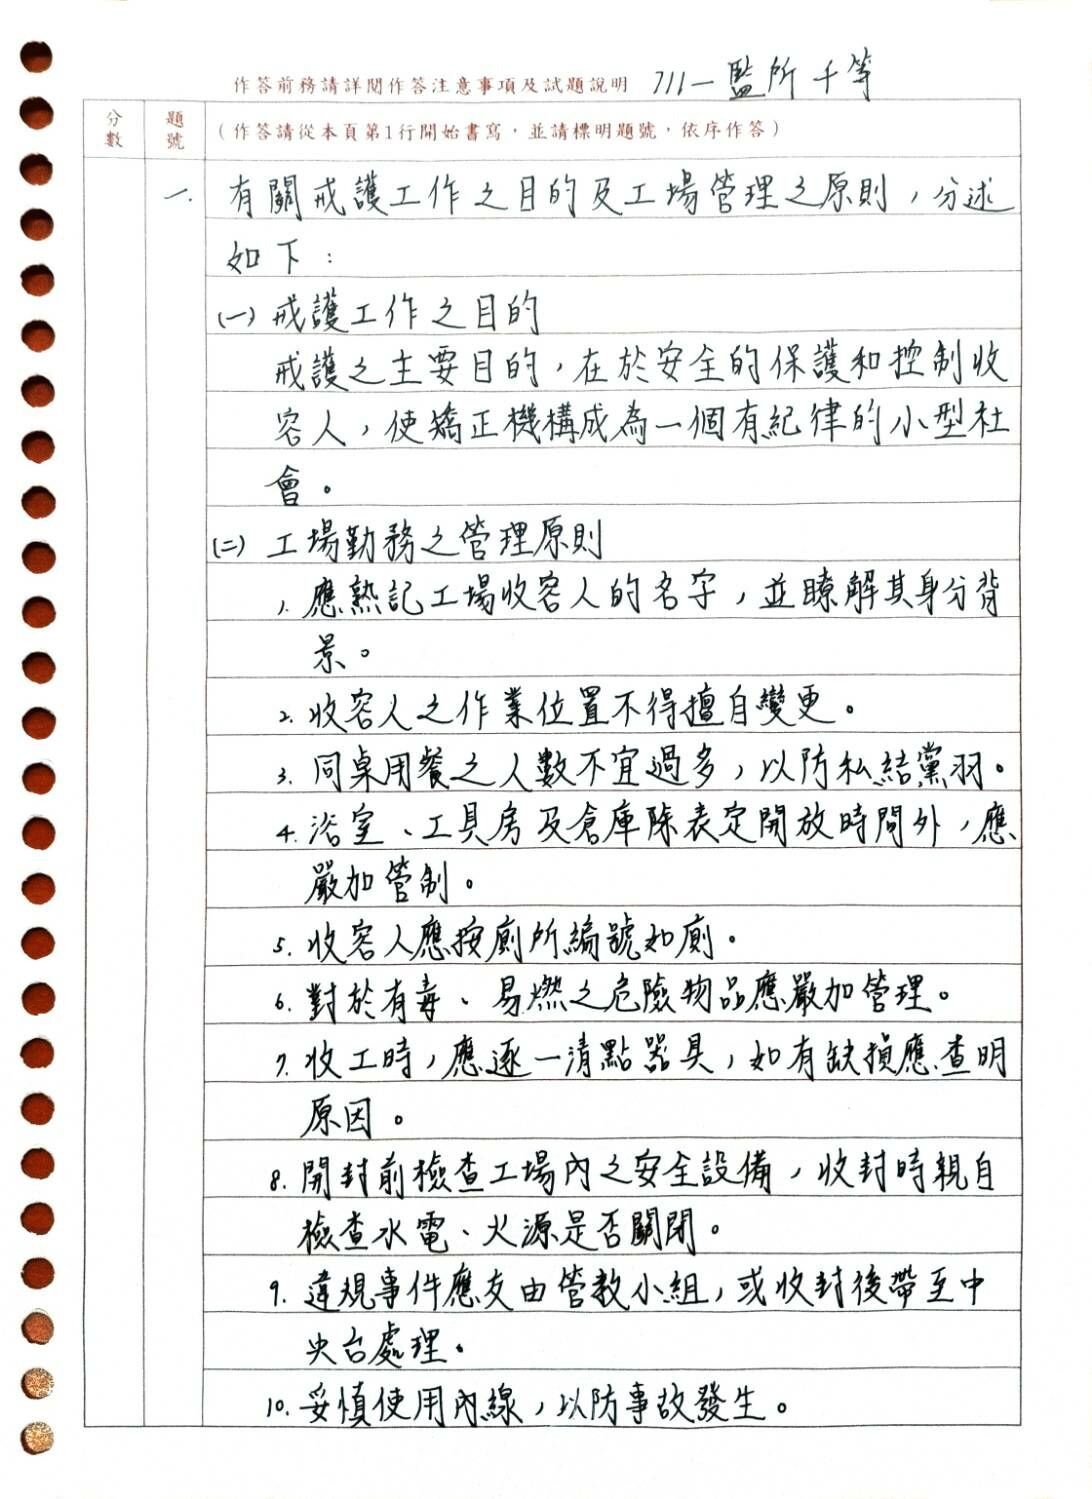 作答前務請詳閱作答注意事項及試題說明 711－監所 千等
分數 題號 （作答請從本頁第1行開始書寫，並請標明題號，依序作答）
一、有關戒護工作之目的及工場管理之原則，分述
如下：
(一) 戒護工作之目的
戒護之主要目的，在於安全的保護和控制收
容人，使矯正機構成為一個有紀律的小型社
會。
(二) 工場勤務之管理原則
1. 應熟記工場收容人的名字，並瞭解其身分背
景。
2. 收容人之作業位置不得擅自變更。
3. 同桌用餐之人數不宜過多，以防私結黨羽。
4. 浴室、工具房及倉庫除表定開放時間外，應
嚴加管制。
5. 收容人應按廁所編號如廁。
6. 對於有毒、易燃之危險物品應嚴加管理。
7. 收工時，應逐一清點器具，如有缺損應查明
原因。
8. 開封前檢查工場內之安全設備，收封時親自
檢查水電、火源是否關閉。
9. 違規事件應交由管教小組，或收封後帶至中
央台處理。
10. 妥慎使用內線，以防事故發生。